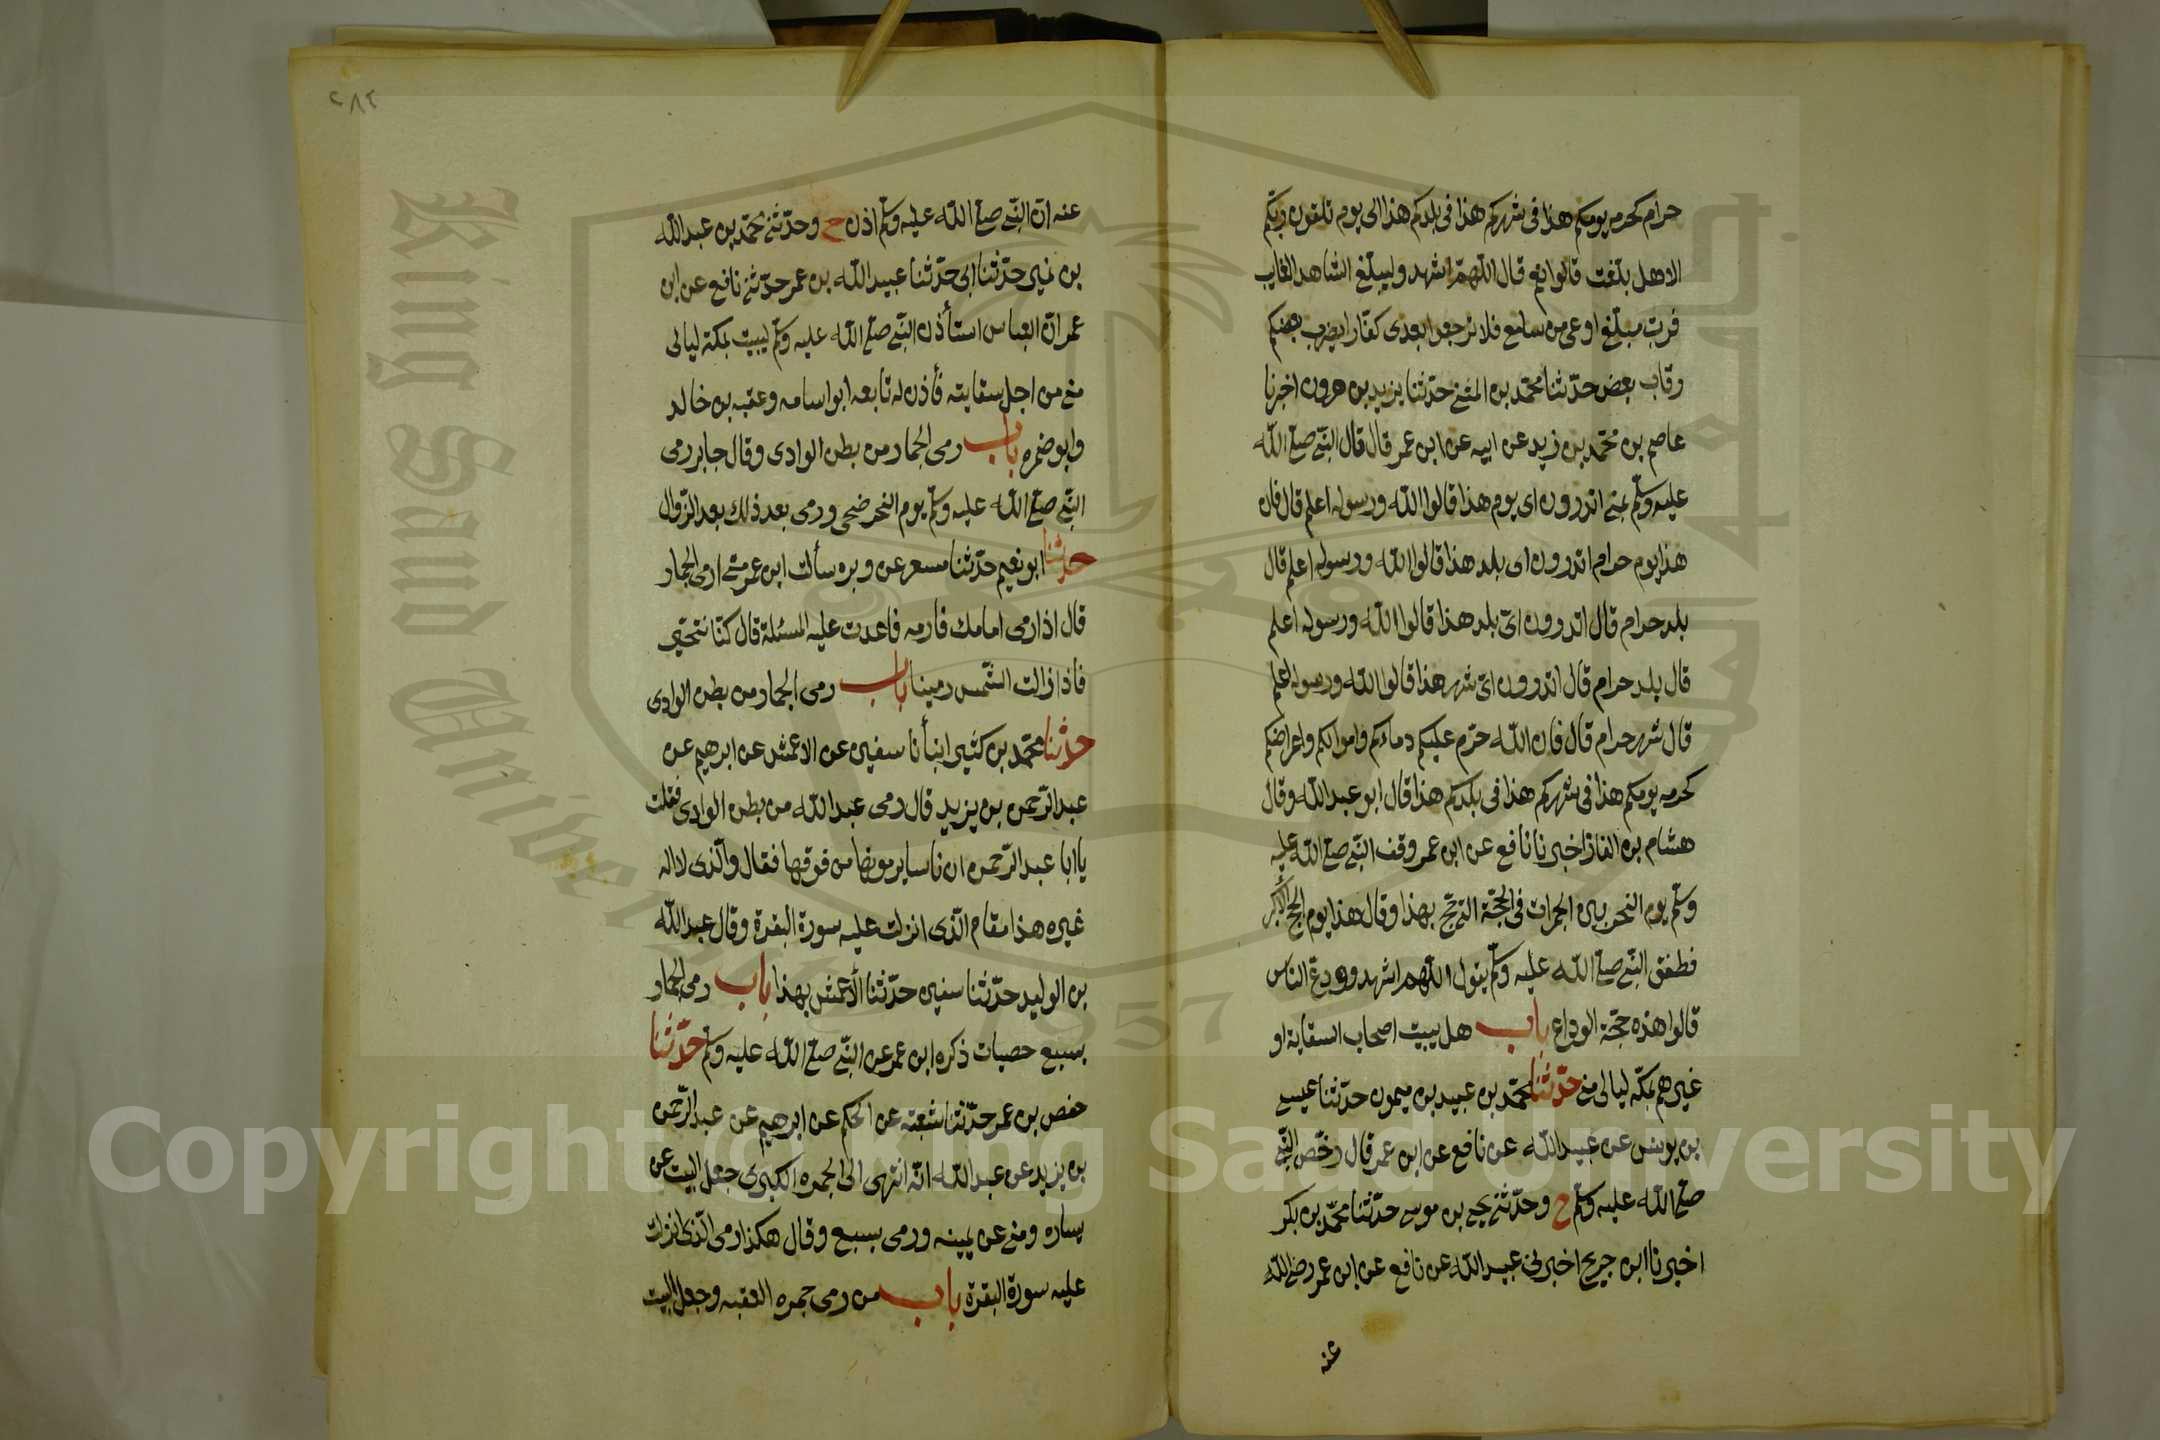 حرام كحرمه يومكم هذا فى شهركم هذا فى بلدكم هذا الى يوم تلقون ربكم
الا هل بلّغت قالوا نعم قال اللهمّ اشهد وليبلّغ الشاهد الغايب
فربّ مبلّغ اوعى من سامع فلا ترجعوا بعدى كفّارا يضرب بعضكم
رقاب بعض حدّثنا محمّد بن المثنى حدّثنا يزيد بن هرون اخبرنا
عاصم بن محمّد بن زيد عن ابيه عن ابن عمر قال قال النّبى صلى الله
عليه وسلّم بمنى اتدرون اى يوم هذا قالوا الله ورسوله اعلم قال فان
هذا يوم حرام اتدرون اى بلد هذا قالوا الله ورسوله اعلم قال
بلد حرام قال اتدرون اىّ بلد هذا قالوا الله ورسوله اعلم
قال بلد حرام قال اتدرون اىّ شهر هذا قالوا الله ورسوله اعلم
قال شهر حرام قال فان الله حرّم عليكم دماءكم واموالكم واعراضكم
كحرمه يومكم هذا فى شهركم هذا فى بلدكم هذا قال ابو عبدالله وقال
هشام بن الغاز اخبرنا نافع عن ابن عمر وقف النّبى صلى الله عليه
وسلّم يوم النحر بين الجمرات فى الحجّة التى حج بهذا وقال هذا يوم الحج الأكبر
فطفق النّبى صلى الله عليه وسلّم يقول اللهم اشهد وودع الناس
قالوا هذه حجّة الوداع باب هل يبيت اصحاب السقاية او
غيرهم بمكّه ليالى منى حدّثنا محمّد بن عبيد بن ميمون حدّثنا عيسى
بن يونس عن عبيدالله عن نافع عن ابن عمر قال رخّص النّبى
صلى الله عليه وسلّم ح وحدّثنى يحيى بن موسى حدّثنا محمّد بن بكر
اخبرنا ابن جريج اخبرنى عبيد الله عن نافع عن ابن عمر رضى الله
عنه
٢٨٢
عنه انّ النّبى صلى الله عليه وسلّم اذن ح وحدّثنى محمّد بن عبدالله
بن نمير حدّثنا ابى حدّثنا عبيد الله بن عمر حدّثنى نافع عن ابن
عمر انّ العباس استأذن النّبى صلى الله عليه وسلّم ليبيت بمكة ليالى
منى من اجل سقايته فأذن له تابعه ابو اسامه وعقبه بن خالد
وابو ضمره باب رمى الجمار من بطن الوادى وقال جابر رمى
النّبى صلى الله عليه وسلّم يوم النحر ضحى ورمى بعد ذلك بعد الزّوال
حدثنا ابو نعيم حدّثنا مسعر عن وبره سألت ابن عمر متى ارمى الجمار
قال اذا رمى امامك فارمه فاعدت عليه المسئلة قال كنّا نتحيّن
فاذا زالت الشّمس رمينا باب رمى الجمار من بطن الوادى
حدثنا محمّد بن كثير انبأنا سفين عن الاعمش عن ابرهيم عن
عبد الرّحمن بن يزيد قال رمى عبدالله من بطن الوادى فقلت
يا ابا عبد الرّحمن ان ناسا يرمونها من فوقها فقال والّذى لا اله
غيره هذا مقام الّذى انزلت عليه سورة البقرة وقال عبد الله
بن الوليد حدّثنا سفين حدّثنا الأعمش بهذا باب رمى الجمار
بسبع حصيات ذكره ابن عمر عن النّبى صلى الله عليه وسلّم حدّثنا
حفص بن عمر حدّثنا شعبة عن الحكم عن ابرهيم عن عبد الرّحمن
بن يزيد عن عبد الله انّه انتهى الى الجمره الكبرى جعل البيت عن
يساره ومنى عن يمينه ورمى بسبع وقال هكذا رمى الّذى انزلت
عليه سورة البقرة باب من رمى جمره العقبه وجعل البيت
King Saud University
1957
Copyright © King Saud University